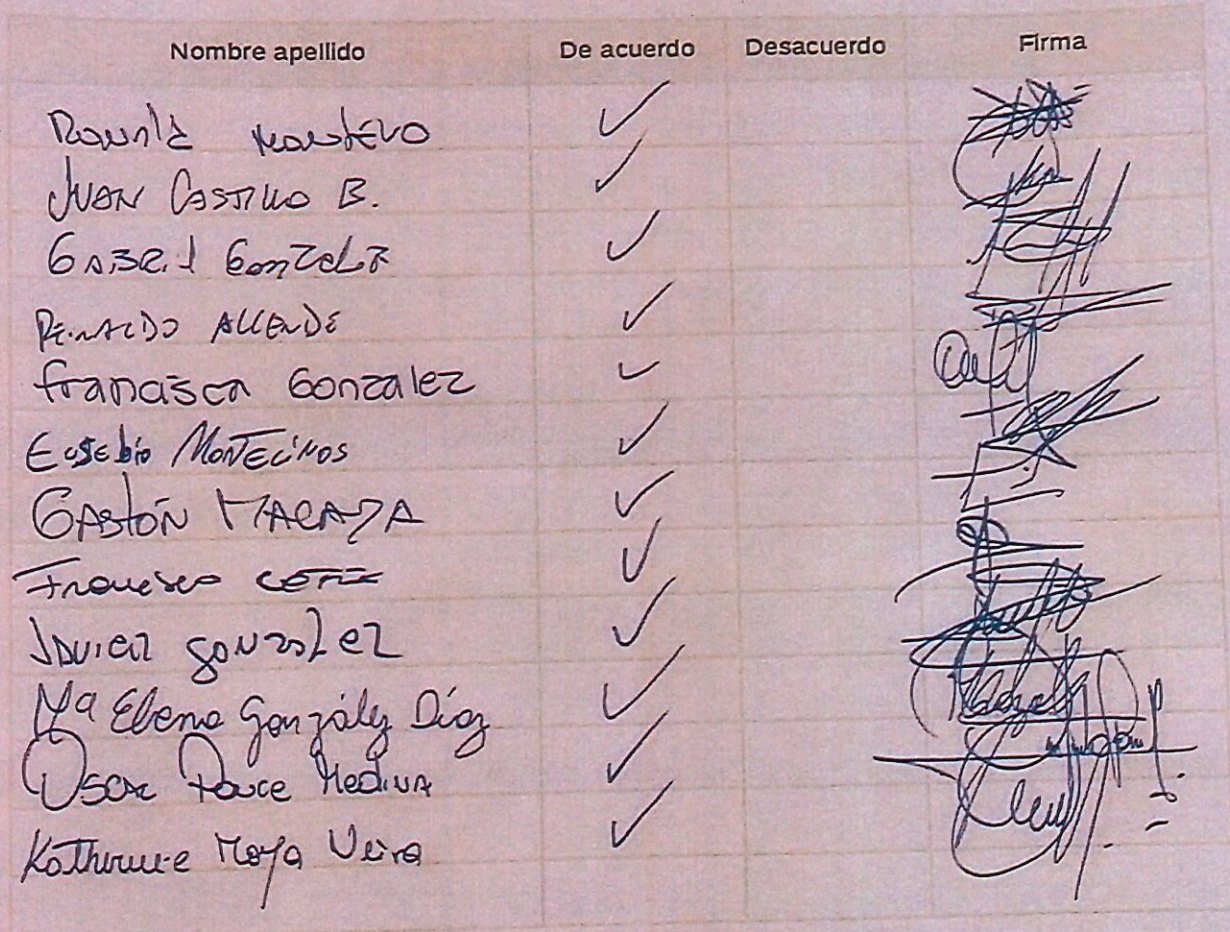 Nombre apellido De acuerdo Desacuerdo Firma
Ronald Montero ✓
JUAN CASTILLO B. ✓
GABRIel GonZaleZ ✓
REINALDO ALLENDE ✓
francisca Gonzalez ✓
Eusebio MONTECINOS ✓
GAStÓN MACAYA ✓
Francisco ✓
Javier gonzalez ✓
Mª Elena González Díaz ✓
Oscar Ponce Medina ✓
Katherine Moya ✓